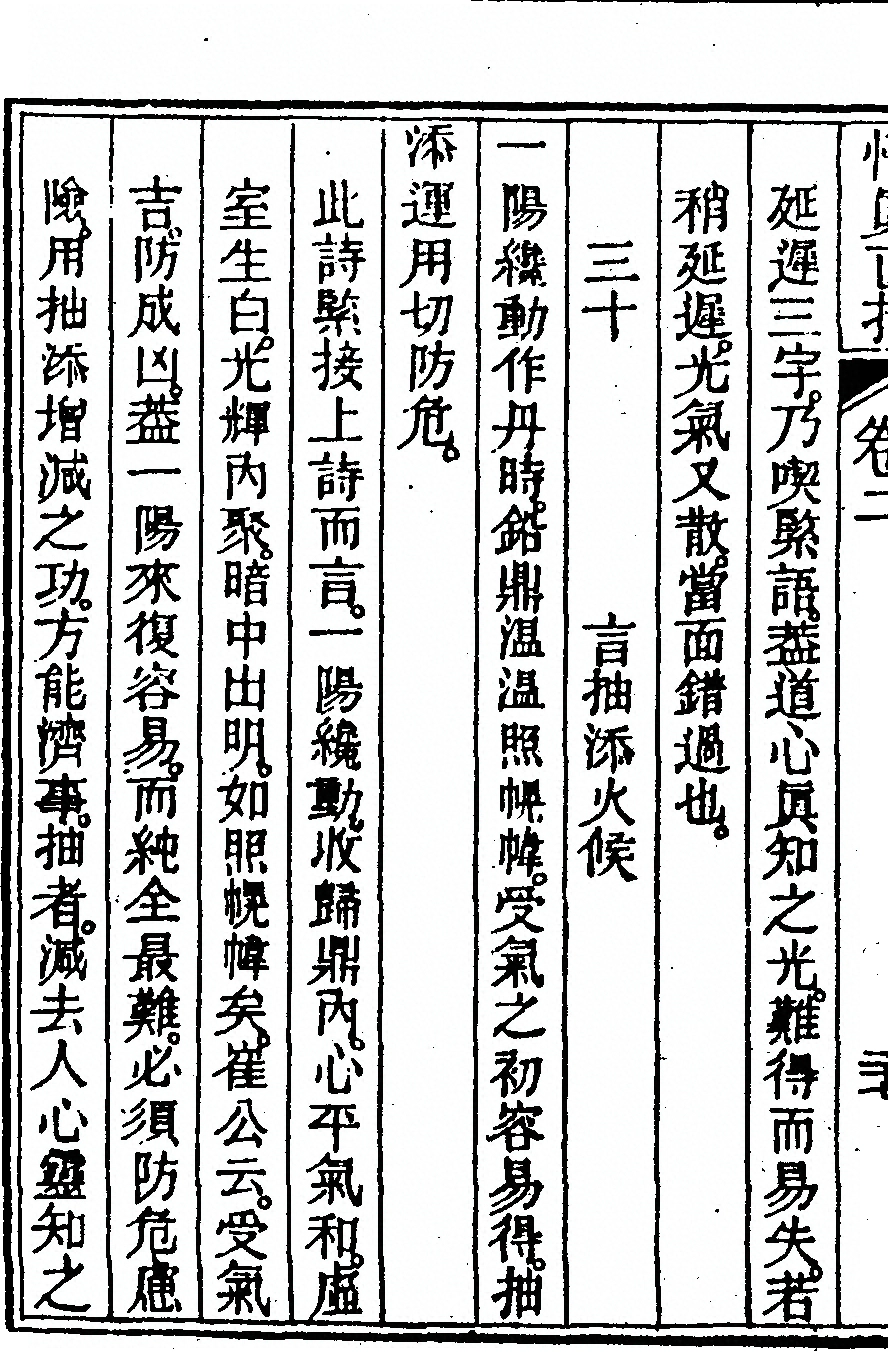 悟真直指　卷二
延遲三字。乃喫緊語。葢道心眞知之光。難得而易失。若
稍延遲。光氣又散。當面錯過也。
三十　言抽添火候
一陽纔動作丹時。鉛鼎温温照幌幃。受氣之初容易得。抽
添運用切防危。
此詩緊接上詩而言。一陽纔動。收歸鼎內。心平氣和。虛
室生白。光輝內聚。暗中出明。如照幌幃矣。崔公云。受氣
吉。防成凶。葢一陽來復容易。而純全最難。必須防危慮
險。用抽添增減之功。方能濟事。抽者。減去人心靈知之